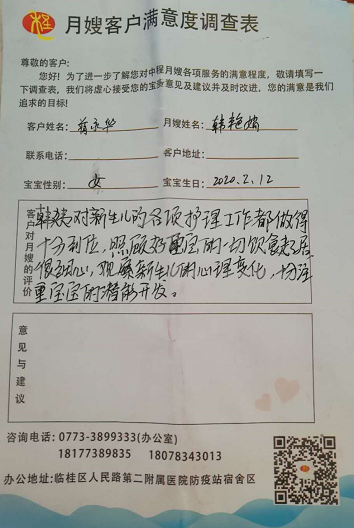 月嫂客户满意度调查表
尊敬的客户:
您好! 为了进一步了解您对中程月嫂各项服务的满意程度, 敬请填写一
下调查表, 我们将虚心接受您的宝贵意见及建议并及时改进, 您的满意是我们
追求的目标!
客户姓名: 蒋永华 月嫂姓名: 韩艳嫦
联系电话: 客户地址:
宝宝性别: 女 宝宝生日: 2020.2.12
客户对月嫂的评价
韩嫂对新生儿的各项护理工作都做得
十分到位,照顾好宝宝的一切饮食起居
很细心,观察新生儿的心理变化,十分注
重宝宝的潜能开发。
意见与建议
咨询电话: 0773-3899333(办公室)
18177389835 18078343013
办公地址:临桂区人民路第二附属医院防疫站宿舍区